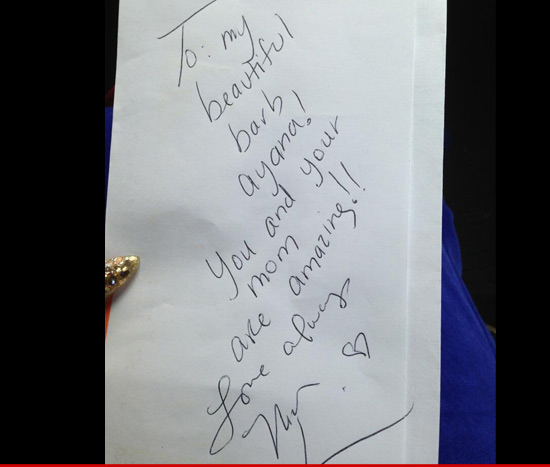 To: my
beautiful
barb
ayana!
You and your
mom
are amazing!!
Love always